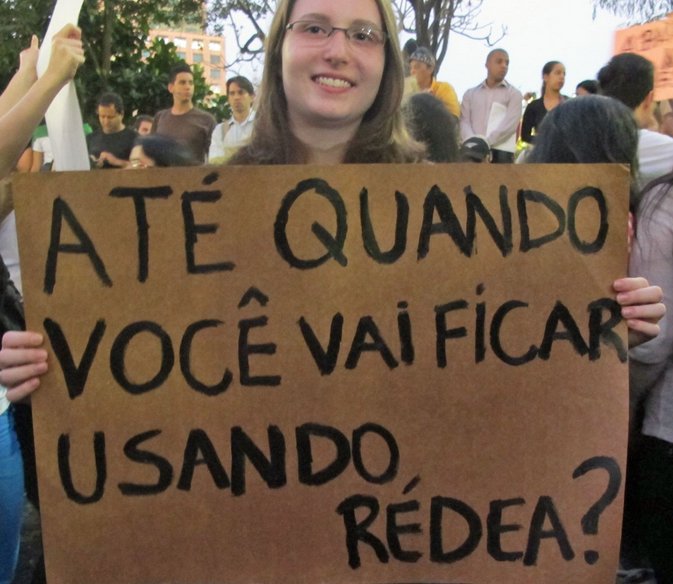 ATÉ QUANDO
VOCÊ VAI FICAR
USANDO
RÉDEA?